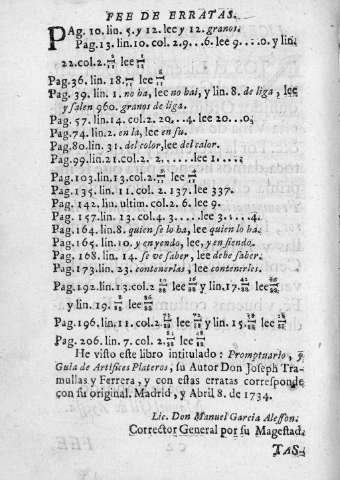 FEE DE ERRATAS.
PAg. 10. lin. 5. y 12. lee y 12. granos.
Pag. 13. lin. 10. col. 2. 9...6. lee 9....0. y lin.
22. col. 2. lee
Pag. 36. lin. 18. lee
Pag. 39. lin. 1. no ba, lee no bai, y lin. 8. de liga, lee
y salen 960. granos de liga.
Pag. 57. lin. 14. col. 2. 20...4. lee 20...0.
Pag. 74. lin. 2. en la, lee en su.
Pag. 80. lin. 31. del color, lee del calor.
Pag. 99. lin. 21. col. 2. 2...... lee 1....
Pag. 103. lin. 13. col. 2. lee
Pag. 135. lin. 11. col. 2. 137. lee 337.
Pag. 142. lin. ultim. col. 2. 6. lee 9.
Pag. 157. lin. 13. col. 4. 3.....lee 3.....4.
Pag. 164. lin. 8. quien se lo ha, lee quien lo ha.
Pag. 165. lin. 10. y en yendo, lee, y en siendo.
Pag. 168. lin. 14. se ve saber, lee debe saber.
Pag. 173. lin. 23. contenerlas, lee contenerles.
Pag. 192. lin. 13. col. 2 lee y lin. 17. lee
y lin. 19. lee
Pag. 196. lin. 11. col. 2 lee y lin. 15. lee
Pag. 206. lin. 7. col. 2. lee
He visto este libro intitulado: Promptuario, y
Guia de Artifices Plateros, su Autor Don Joseph Tra-
mullas y Ferrera, y con estas erratas corresponde
con su original. Madrid, y Abril 8. de 1734.
Lic. Don Manuel Garcia Alesson.
Corrector General por su Magestad.
TAS-